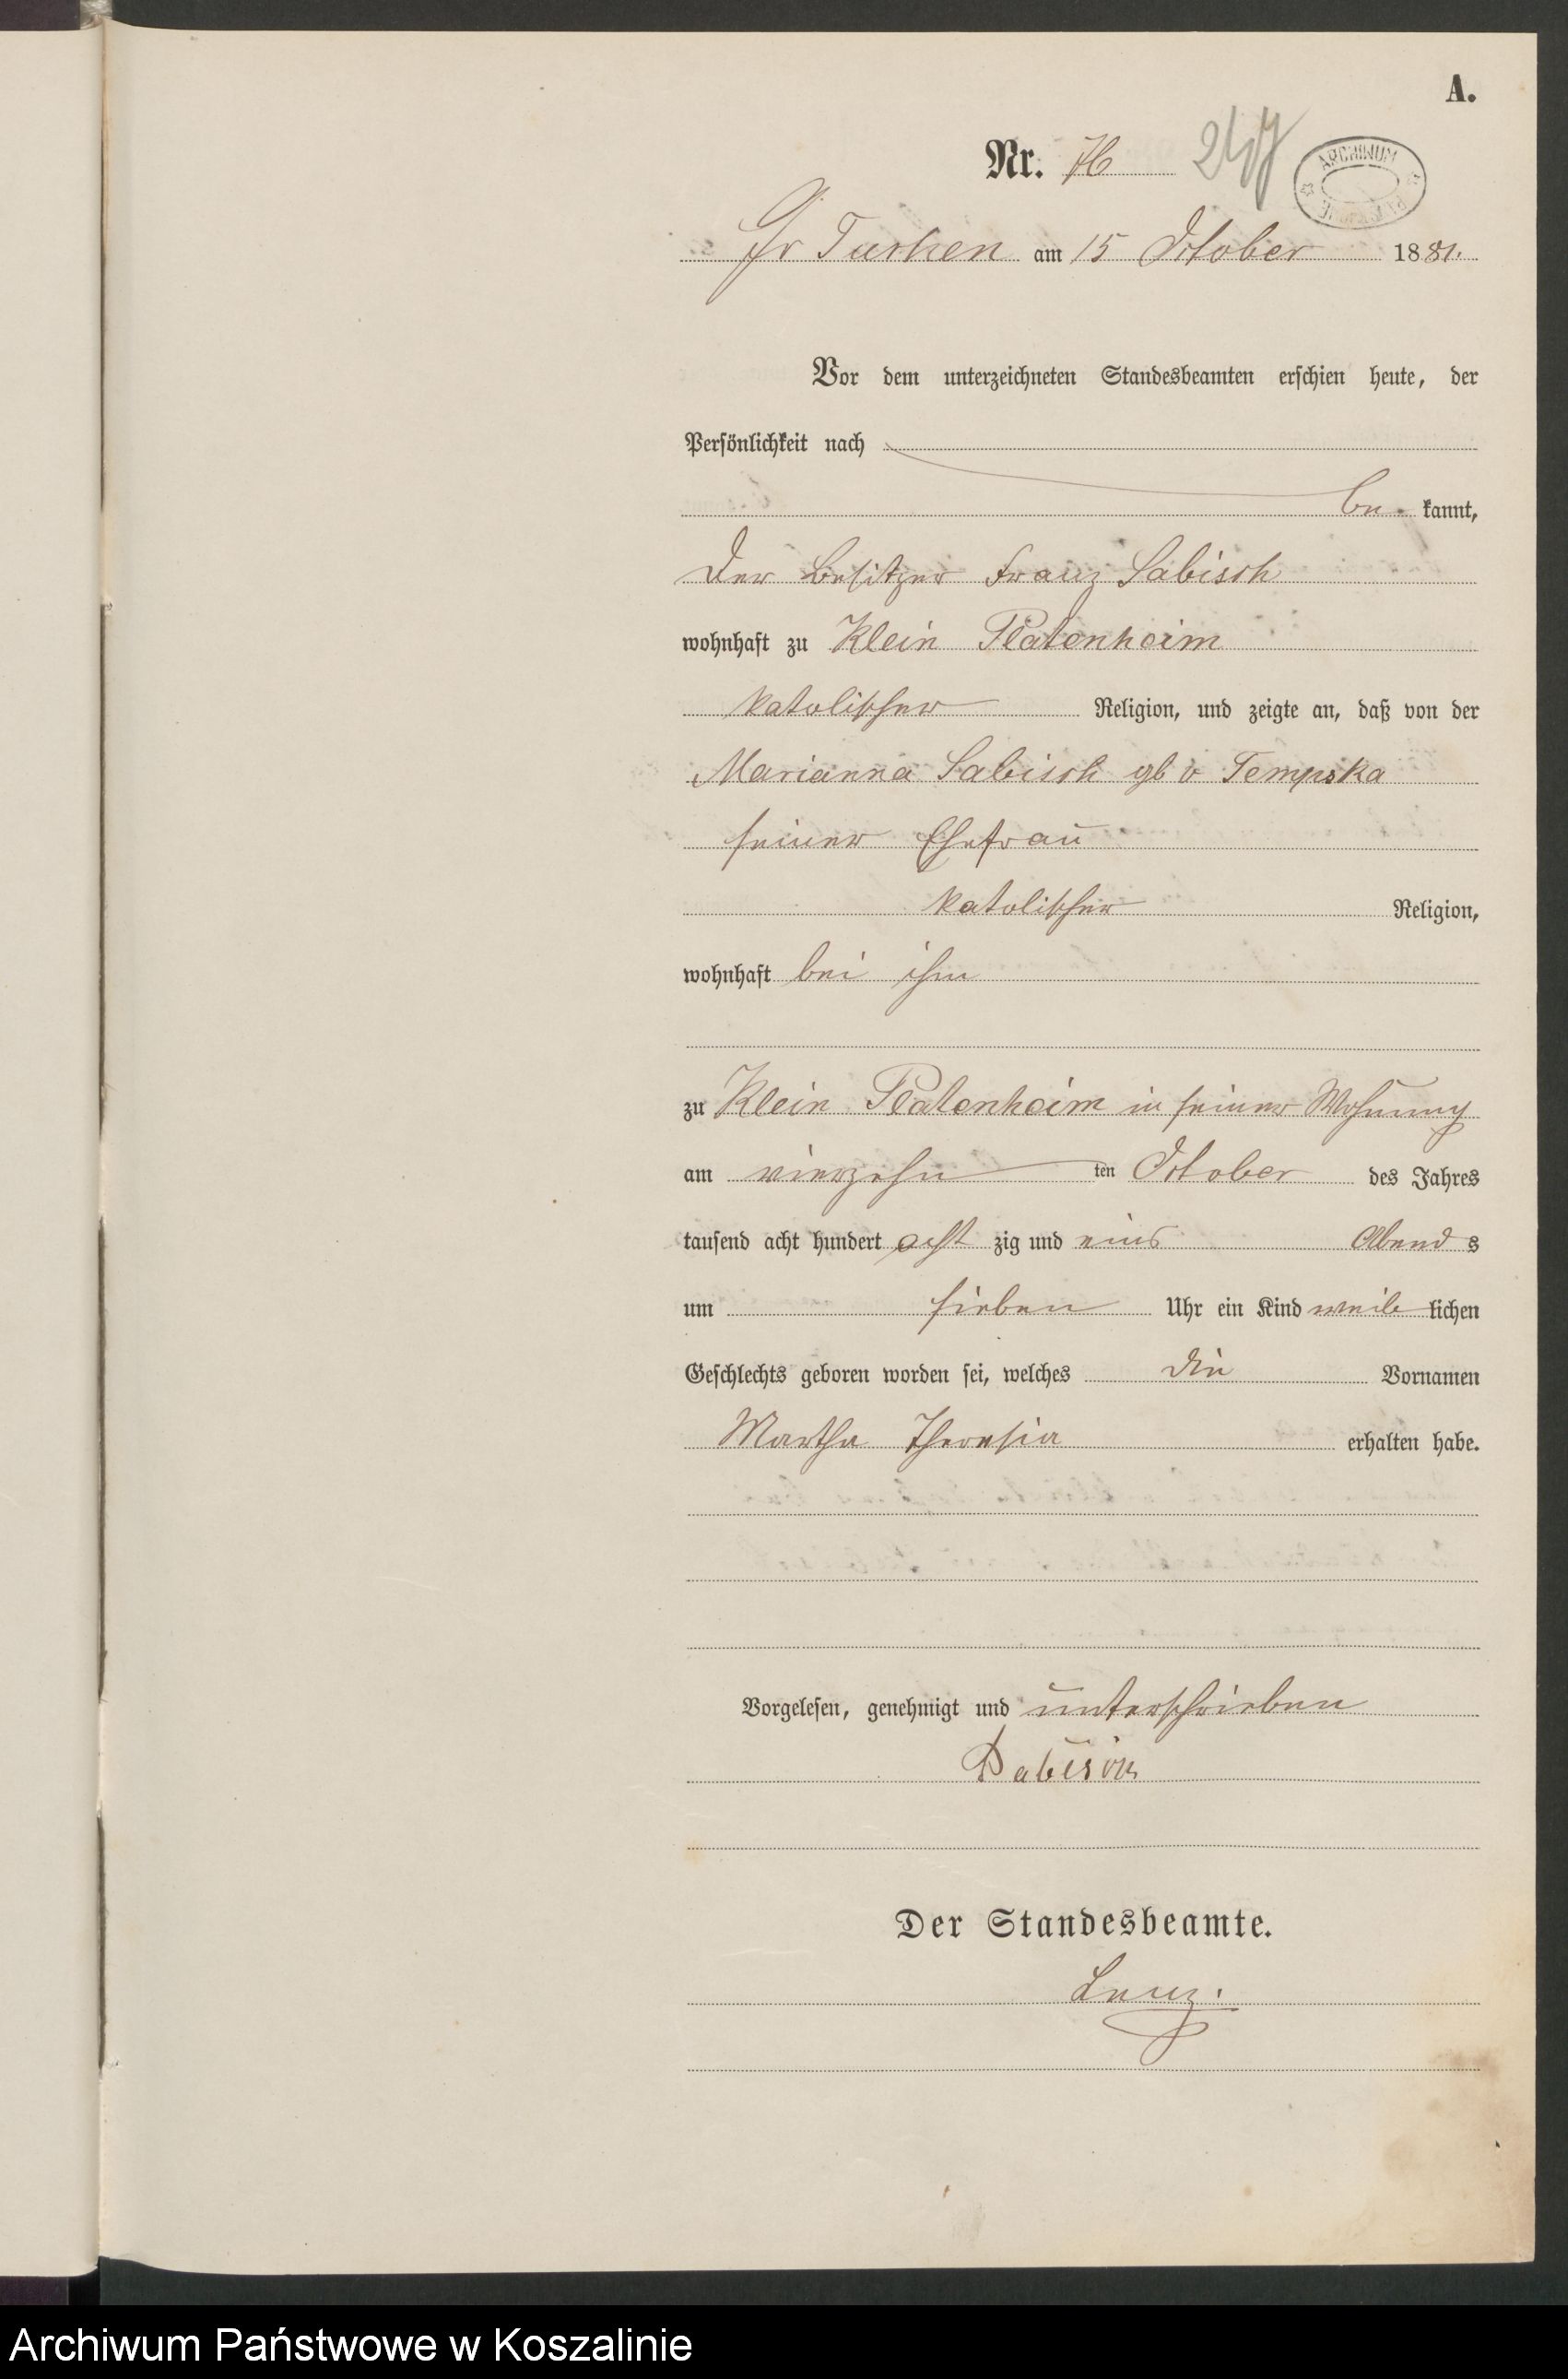 A.
Nr. 76 247
ARCHIWUM
Gr Tuchen am 15 October 1881.
Vor dem unterzeichneten Standesbeamten erschien heute, der
Persönlichkeit nach
be kannt,
Der Besitzer Franz Sabisch
wohnhaft zu Klein Platenheim
katolischer Religion, und zeigte an, daß von der
Marianna Sabisch gb v Tempska
seiner Ehefrau
katolischer Religion,
wohnhaft bei ihm
zu Klein Platenheim in seiner Wohnung
am vierzehn ten October des Jahres
tausend acht hundert acht zig und eins Abend s
um sieben Uhr ein Kind weib lichen
Geschlechts geboren worden sei, welches die Vornamen
Martha Theresia erhalten habe.
Vorgelesen, genehmigt und unterschrieben
Der Standesbeamte.
Lenz.
Archiwum Państwowe w Koszalinie